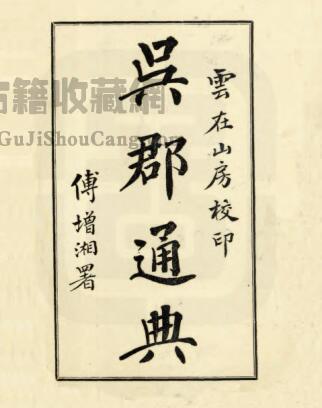 雲在山房校印
吳郡通典
傅增湘署
古籍收藏網
GuJiShouCang